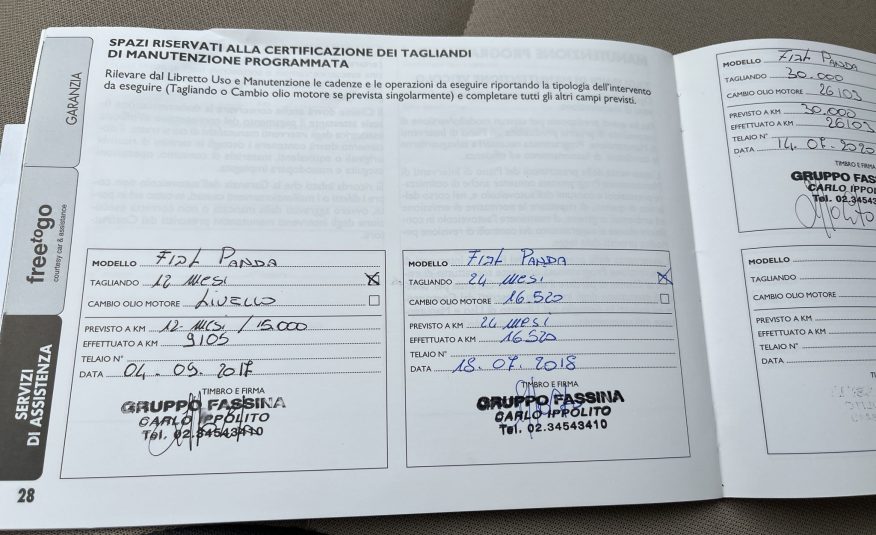 GARANZIA
freetogo
courtesy car & assistance
SERVIZI
DI ASSISTENZA
28
SPAZI RISERVATI ALLA CERTIFICAZIONE DEI TAGLIANDI
DI MANUTENZIONE PROGRAMMATA
Rilevare dal Libretto Uso e Manutenzione le cadenze e le operazioni da eseguire riportando la tipologia dell'intervento
da eseguire (Tagliando o Cambio olio motore se prevista singolarmente) e completare tutti gli altri campi previsti.
MODELLO FIAT PANDA
TAGLIANDO 12 MESI
CAMBIO OLIO MOTORE LIVELLO
PREVISTO A KM 12 MESI / 15.000
EFFETTUATO A KM 9105
TELAIO N°
DATA 04.09.2017
TIMBRO E FIRMA
GRUPPO FASSINA
CARLO IPPOLITO
Tel. 02.34543410
MODELLO FIAT PANDA
TAGLIANDO 24 MESI
CAMBIO OLIO MOTORE 16.520
PREVISTO A KM 24 MESI
EFFETTUATO A KM 16520
TELAIO N°
DATA 18.07.2018
TIMBRO E FIRMA
GRUPPO FASSINA
CARLO IPPOLITO
Tel. 02.34543410
MODELLO FIAT PANDA
TAGLIANDO 30.000
CAMBIO OLIO MOTORE 26103
PREVISTO A KM 30.000
EFFETTUATO A KM 26103
TELAIO N°
DATA 14.07.2020
TIMBRO E FIRMA
GRUPPO FAS
CARLO IPPOL
Tel. 02.3454
MODELLO
TAGLIANDO
CAMBIO OLIO MOTORE
PREVISTO A KM
EFFETTUATO A KM
TELAIO N°
DATA